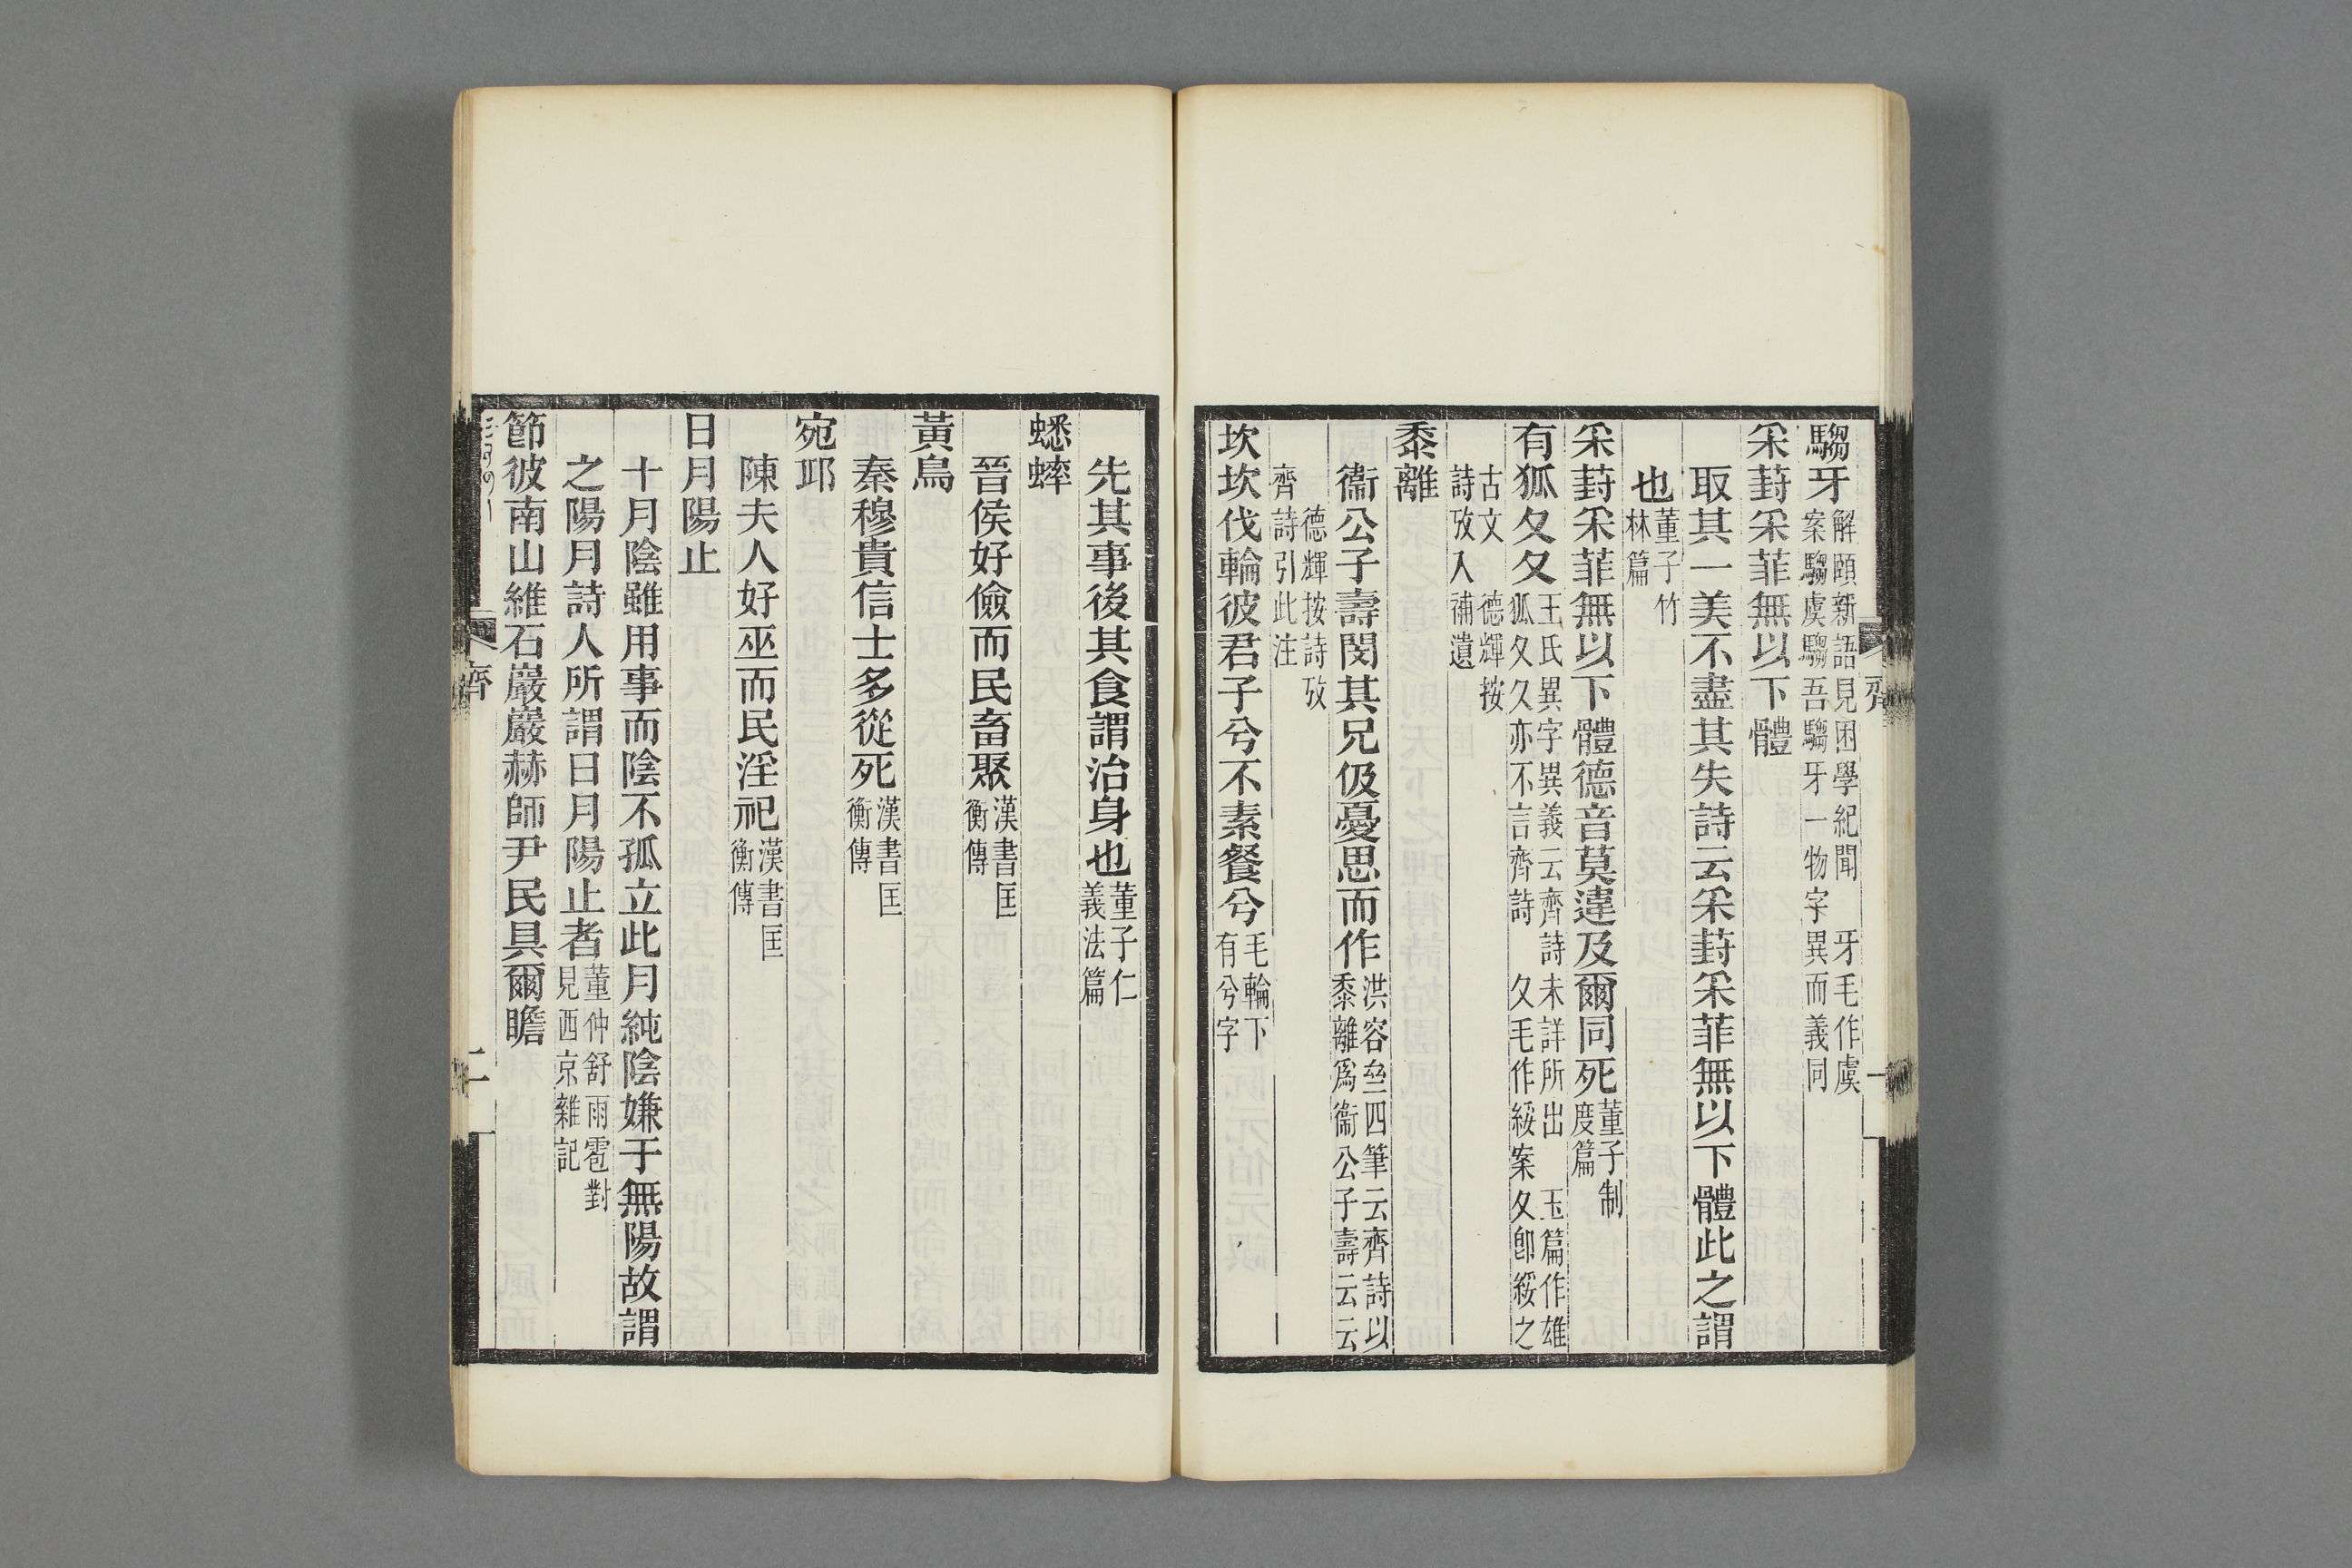 騶牙解頤新語見困學紀聞 牙毛作虞案騶虞騶吾騶牙一物字異而義同
采葑采菲無以下體
取其一美不盡其失詩云采葑采菲無以下體此之謂
也董子竹林篇
采葑采菲無以下體德音莫違及爾同死董子制度篇
有狐夂夂王氏異字異義云齊詩未詳所出 玉篇作雄狐夂夂亦不言齊詩 夂毛作綏案夂卽綏之
古文 德輝按詩攷入補遺
黍離
衞公子壽閔其兄伋憂思而作洪容齋四筆云齊詩以黍離爲衞公子壽云云
德輝按詩攷齊詩引此注
坎坎伐輪彼君子兮不素餐兮毛輪下有兮字
先其事後其食謂治身也董子仁義法篇
蟋蟀
晉侯好儉而民畜聚漢書匡衡傳
黃鳥
秦穆貴信士多從死漢書匡衡傳
宛邱
陳夫人好巫而民淫祀漢書匡衡傳
日月陽止
十月陰雖用事而陰不孤立此月純陰嫌于無陽故謂
之陽月詩人所謂日月陽止者董仲舒雨雹對見西京雜記
節彼南山維石巖巖赫師尹民具爾瞻
齊
二